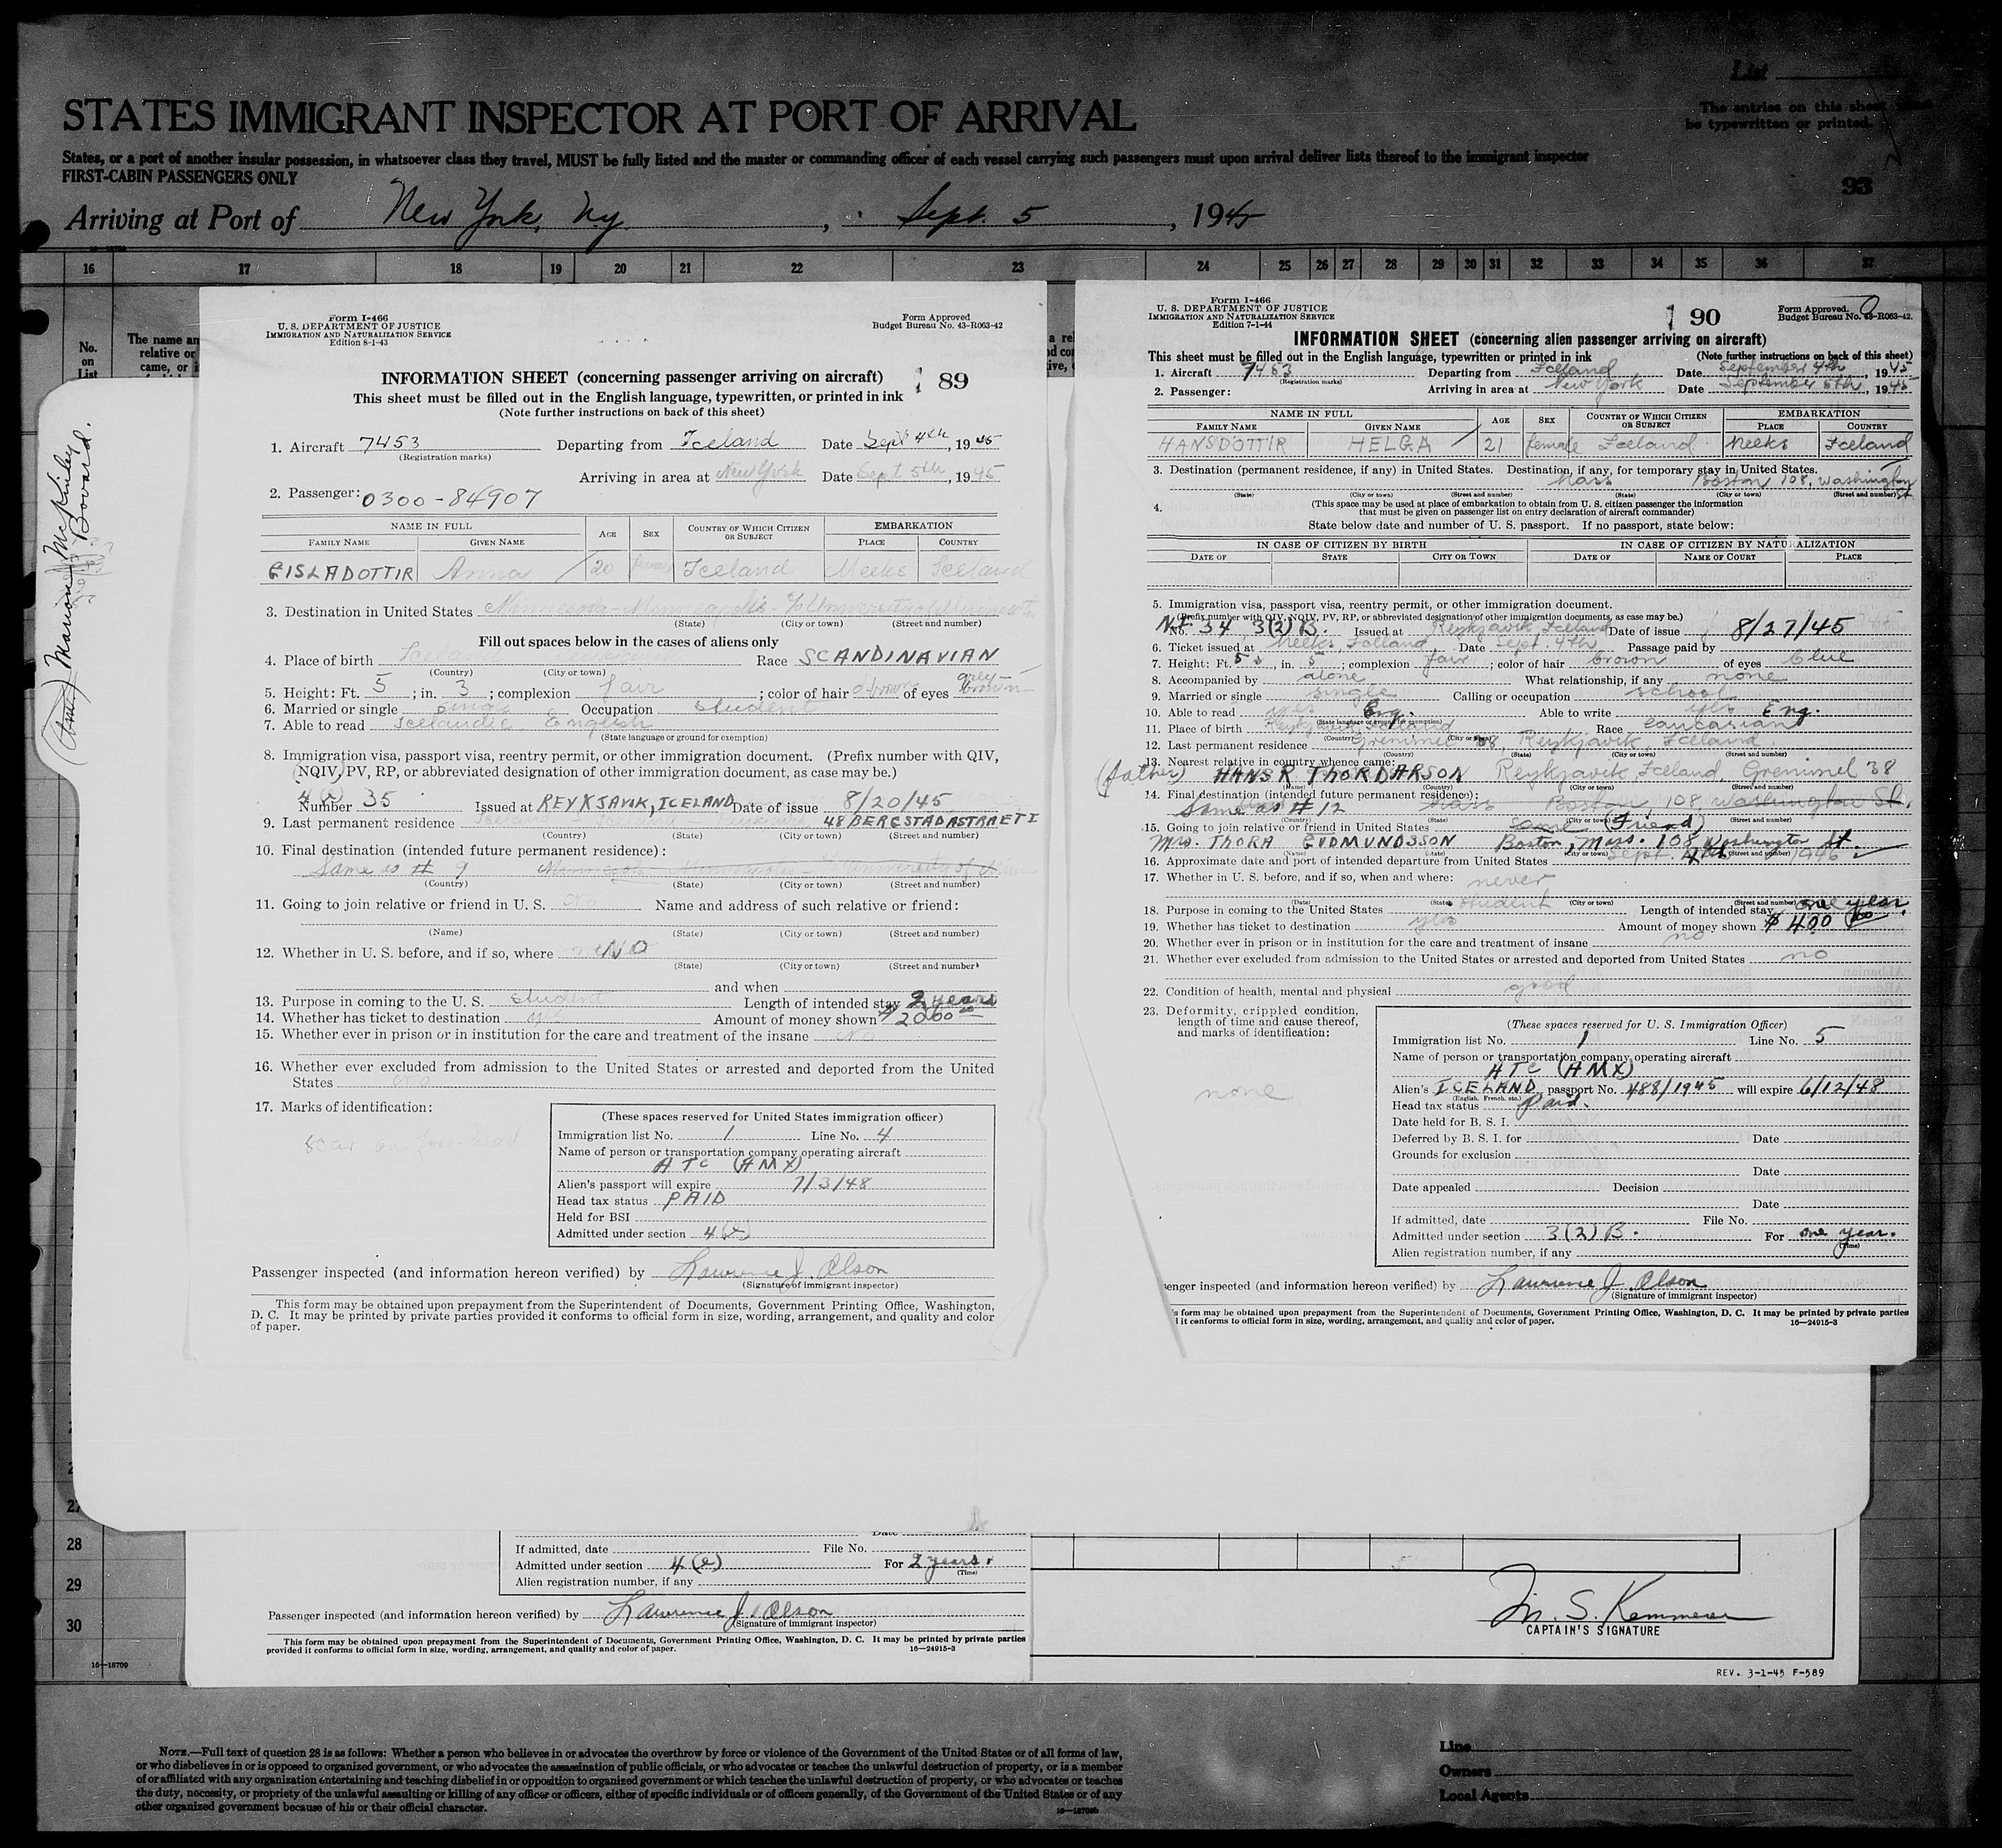 List
STATES IMMIGRANT INSPECTOR AT PORT OF ARRIVAL
The entries on this sheet must
be typewritten or printed.
States, or a port of another insular possession, in whatsoever class they travel, MUST be fully listed and the master or commanding officer of each vessel carrying such passengers must upon arrival deliver lists thereof to the immigrant inspector
FIRST-CABIN PASSENGERS ONLY
93
Arriving at Port of New York, Ny. , Sept. 5 , 1945
16 17 18 19 20 21 22 23 24 25 26 27 28 29 30 31 32 33 34 35 36 37
No.
on
List
The name an
relative or
came, or i
(Aml) Marione McKinley
Bovard.
Form I-466
U. S. DEPARTMENT OF JUSTICE
IMMIGRATION AND NATURALIZATION SERVICE
Edition 8-1-43
Form Approved
Budget Bureau No. 43-R063-42
INFORMATION SHEET (concerning passenger arriving on aircraft) 89
This sheet must be filled out in the English language, typewritten, or printed in ink
(Note further instructions on back of this sheet)
1. Aircraft 7453 Departing from Iceland Date Sept 4th, 1945
(Registration marks)
Arriving in area at New York Date Sept 5th, 1945
2. Passenger: 0300-84907
NAME IN FULL AGE SEX COUNTRY OF WHICH CITIZEN OR SUBJECT EMBARKATION
FAMILY NAME GIVEN NAME PLACE COUNTRY
GISLADOTTIR Anna 20 female Iceland Meeks Iceland
3. Destination in United States Minnesota - Minneapolis - % University of Minnesota
(State) (City or town) (Street and number)
Fill out spaces below in the cases of aliens only
4. Place of birth Iceland Race SCANDINAVIAN
(Country) (City or town)
5. Height: Ft. 5 ; in. 3 ; complexion fair ; color of hair brown of eyes grey brown
6. Married or single single Occupation student
7. Able to read Icelandic, English
(State language or ground for exemption)
8. Immigration visa, passport visa, reentry permit, or other immigration document. (Prefix number with QIV,
NQIV, PV, RP, or abbreviated designation of other immigration document, as case may be.)
4(e)
Number 35 Issued at REYKJAVIK, ICELAND Date of issue 8/20/45
9. Last permanent residence Iceland - Iceland - Reykjavik, 48 BERGSTADASTRAETI
(Country) (State) (City or town) (Street and number)
10. Final destination (intended future permanent residence):
Same as # 9 Minnesota - Minneapolis - % University of Minn
(Country) (State) (City or town) (Street and number)
11. Going to join relative or friend in U. S. no Name and address of such relative or friend:
(Name) (State) (City or town) (Street and number)
12. Whether in U. S. before, and if so, where NO
(State) (City or town) (Street and number)
and when
13. Purpose in coming to the U. S. student Length of intended stay 2 years
14. Whether has ticket to destination yes Amount of money shown $ 2000 00
15. Whether ever in prison or in institution for the care and treatment of the insane no
16. Whether ever excluded from admission to the United States or arrested and deported from the United
States no
17. Marks of identification:
scar on fore-head
(These spaces reserved for United States immigration officer)
Immigration list No. 1 Line No. 4
Name of person or transportation company operating aircraft
ATC (AMX)
Alien's passport will expire 7/3/48
Head tax status PAID
Held for BSI
Admitted under section 4(e)
Passenger inspected (and information hereon verified) by Lawrence J. Olson
(Signature of immigrant inspector)
This form may be obtained upon prepayment from the Superintendent of Documents, Government Printing Office, Washington,
D. C. It may be printed by private parties provided it conforms to official form in size, wording, arrangement, and quality and color
of paper.
Form I-466
U. S. DEPARTMENT OF JUSTICE
IMMIGRATION AND NATURALIZATION SERVICE
Edition 7-1-44
90
Form Approved.
Budget Bureau No. 43-R063-42.
INFORMATION SHEET (concerning alien passenger arriving on aircraft)
This sheet must be filled out in the English language, typewritten or printed in ink (Note further instructions on back of this sheet)
1. Aircraft 7453 Departing from Iceland Date September 4th, 1945
(Registration marks)
2. Passenger: Arriving in area at New York Date September 5th, 1945
NAME IN FULL AGE SEX COUNTRY OF WHICH CITIZEN OR SUBJECT EMBARKATION
FAMILY NAME GIVEN NAME PLACE COUNTRY
HANSDOTTIR HELGA 21 female Iceland Meeks Iceland
3. Destination (permanent residence, if any) in United States. Destination, if any, for temporary stay in United States.
Mass Boston 108, Washington St
(State) (City or town) (Street and number) (State) (City or town) (Street and number)
4. (This space may be used at place of embarkation to obtain from U. S. citizen passenger the information
that must be given on passenger list on entry declaration of aircraft commander)
State below date and number of U. S. passport. If no passport, state below:
IN CASE OF CITIZEN BY BIRTH IN CASE OF CITIZEN BY NATURALIZATION
DATE OF STATE CITY OR TOWN DATE OF NAME OF COURT PLACE
5. Immigration visa, passport visa, reentry permit, or other immigration document.
(Prefix number with QIV, NQIV, PV, RP, or abbreviated designation of other immigration documents, as case may be.)
No. 34 3(2)B. Issued at Reykjavik Iceland Date of issue 8/27/45
6. Ticket issued at Meeks Iceland Date Sept. 4th Passage paid by
7. Height: Ft. 5 , in. 5 ; complexion fair ; color of hair brown of eyes blue
8. Accompanied by alone What relationship, if any none
9. Married or single single Calling or occupation school
10. Able to read yes Eng. Able to write yes Eng.
(State language or ground for exemption)
11. Place of birth Reykjavik Iceland Race caucasian
(Country) (City or town)
12. Last permanent residence Grenimel 38, Reykjavik, Iceland
(Country) (State) (City or town) (Street and number)
13. Nearest relative in country whence came:
(father) HANS R THORDARSON Reykjavik, Iceland, Grenimel 38
(Name) (Country) (City or town) (Street and number)
14. Final destination (intended future permanent residence):
Same as # 12 Mass Boston, 108, Washington St.
(Country) (State) (City or town) (Street and number)
15. Going to join relative or friend in United States same (Friend)
Mrs. THORA GUDMUNDSSON Boston, Mass. 108 Washington St.
(Name) (State) (City or town) (Street and number)
16. Approximate date and port of intended departure from United States Sept. 4th 1946
17. Whether in U. S. before, and if so, when and where: never
(Date) (State) (City or town) (Street and number)
18. Purpose in coming to the United States student Length of intended stay one year.
19. Whether has ticket to destination yes Amount of money shown $ 400 00
20. Whether ever in prison or in institution for the care and treatment of insane no
21. Whether ever excluded from admission to the United States or arrested and deported from United States no
22. Condition of health, mental and physical good
23. Deformity, crippled condition,
length of time and cause thereof,
and marks of identification:
none
(These spaces reserved for U. S. Immigration Officer)
Immigration list No. 1 Line No. 5
Name of person or transportation company operating aircraft
ATC (AMX)
Alien's ICELAND passport No. 488/1945 will expire 6/12/48
(English, French, etc.)
Head tax status Paid.
Date held for B. S. I.
Deferred by B. S. I. for Date
Grounds for exclusion
Date
Date appealed Decision
Date
If admitted, date File No.
Admitted under section 3(2)B. For one year.
(Time)
Alien registration number, if any
enger inspected (and information hereon verified) by Lawrence J. Olson
(Signature of immigrant inspector)
s form may be obtained upon prepayment from the Superintendent of Documents, Government Printing Office, Washington, D. C. It may be printed by private parties
it conforms to official form in size, wording, arrangement, and quality and color of paper. 16—24915-3
27
28
29
30
16—18709
Date
If admitted, date File No.
Admitted under section 4(e) For 2 years.
(Time)
Alien registration number, if any
Passenger inspected (and information hereon verified) by Lawrence J. Olson
(Signature of immigrant inspector)
This form may be obtained upon prepayment from the Superintendent of Documents, Government Printing Office, Washington, D. C. It may be printed by private parties
provided it conforms to official form in size, wording, arrangement, and quality and color of paper. 16—24915-3
M. S. Kemmerer
CAPTAIN'S SIGNATURE
REV. 3-1-45 F-589
NOTE.—Full text of question 28 is as follows: Whether a person who believes in or advocates the overthrow by force or violence of the Government of the United States or of all forms of law,
or who disbelieves in or is opposed to organized government, or who advocates the assassination of public officials, or who advocates or teaches the unlawful destruction of property, or is a member
of or affiliated with any organization entertaining and teaching disbelief in or opposition to organized government or which teaches the unlawful destruction of property, or who advocates or teaches
the duty, necessity, or propriety of the unlawful assaulting or killing of any officer or officers, either of specific individuals or of officers generally, of the Government of the United States or of any
other organized government because of his or their official character.
16—18709b
Line
Owners
Local Agents